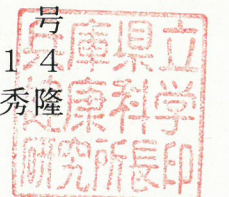 号
１４
秀隆
兵庫県立
健康科学
研究所長印